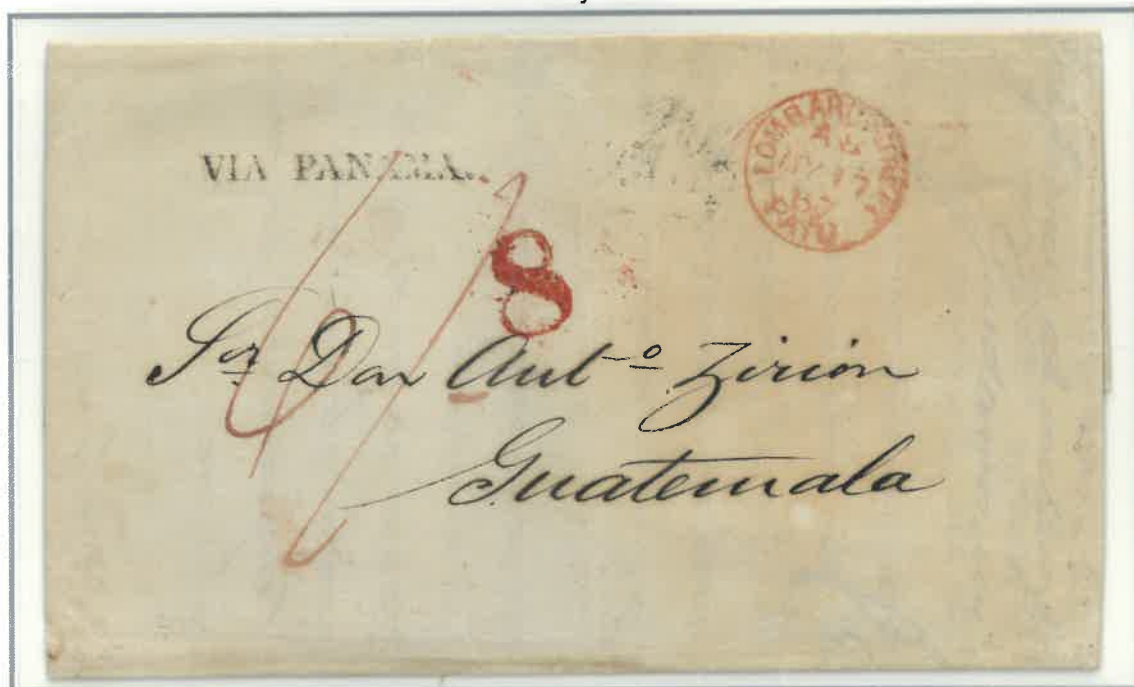 VIA PANAMA.
LOMBARD STREET
PAID
8
Sor Don Anto Zirion
Guatemala